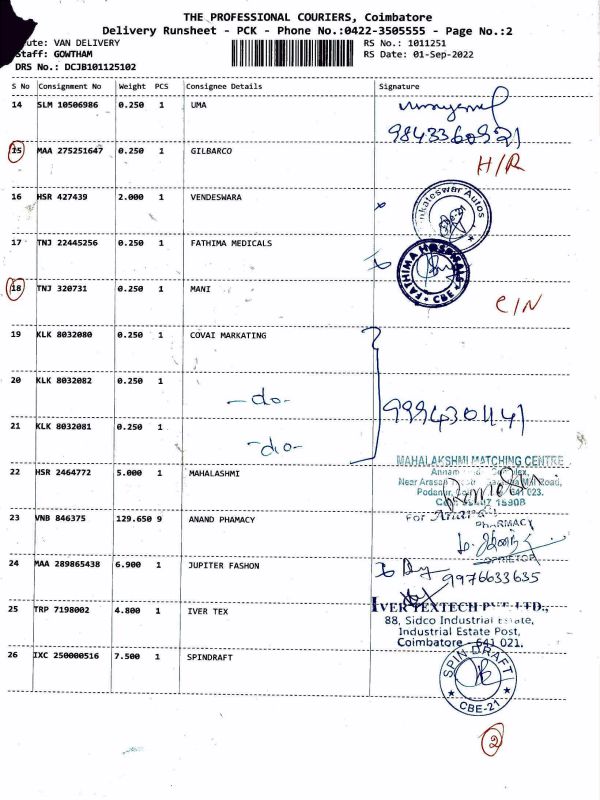 THE PROFESSIONAL COURIERS, Coimbatore
Delivery Runsheet - PCK - Phone No.:0422-3505555 - Page No.:2
ute: VAN DELIVERY
RS No.: 1011251
Staff: GOWTHAM
RS Date: 01-Sep-2022
DRS No.: DCJB101125102
S No Consignment No Weight PCS Consignee Details Signature
14 SLM 10506986 0.250 1 UMA
9843360921
15 MAA 275251647 0.250 1 GILBARCO H/R
16 HSR 427439 2.000 1 VENDESWARA
nkateswar Autos
17 TNJ 22445256 0.250 1 FATHIMA MEDICALS
FATHIMA HOSPITALS CBE
18 TNJ 320731 0.250 1 MANI C/N
19 KLK 8032080 0.250 1 COVAI MARKATING
20 KLK 8032082 0.250 1 -do-
9994301141
21 KLK 8032081 0.250 1 -do-
MAHALAKSHMI MATCHING CENTRE
22 HSR 2464772 5.000 1 MAHALASHMI
Near Arasan Road,
Podanur, 641 023.
15908
23 VNB 846375 129.650 9 ANAND PHAMACY
For PHARMACY
PROPRIETOR
24 MAA 289865438 6.900 1 JUPITER FASHON
9976633635
25 TRP 7198002 4.800 1 IVER TEX
IVER TEXTECH PVT. LTD.,
88, Sidco Industrial Estate,
Industrial Estate Post,
Coimbatore - 641 021.
26 IXC 250000516 7.500 1 SPINDRAFT
SPIN DRAFT CBE-21
2